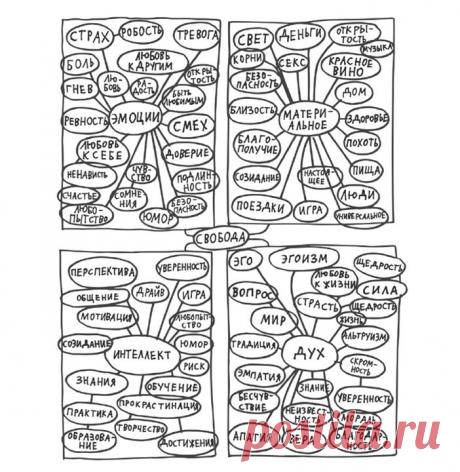 СТРАХ
РОБОСТЬ
ТРЕВОГА
БОЛЬ
ЛЮБОВЬ
К ДРУГИМ
ГНЕВ
ЛЮ-
БОВЬ
РА-
ДОСТЬ
ОТКРЫ-
ТОСТЬ
БЫТЬ
ЛЮБИМЫМ
РЕВНОСТЬ
ЭМОЦИИ
СМЕХ
ЛЮБОВЬ
К СЕБЕ
ДОВЕРИЕ
НЕНАВИСТЬ
ЧУВ-
СТВО
ПОДЛИН-
НОСТЬ
СЧАСТЬЕ
СОМНЕ-
НИЯ
ЛЮБО-
ПЫТСТВО
ЮМОР
БЕЗО-
ПАСНОСТЬ
СВЕТ
ДЕНЬГИ
ОТКРЫ-
ТОСТЬ
МУЗЫКА
КОРНИ
СЕКС
КРАСНОЕ
ВИНО
БЕЗО-
ПАСНОСТЬ
ДОМ
БЛИЗОСТЬ
МАТЕРИ-
АЛЬНОЕ
ЗДОРОВЬЕ
БЛАГО-
ПОЛУЧИЕ
ПОХОТЬ
СОЗИДАНИЕ
НАСТОЯ-
ЩЕЕ
ПИЩА
ЛЮДИ
ПОЕЗДКИ
ИГРА
УНИВЕРСАЛЬНОЕ
СВОБОДА
ПЕРСПЕКТИВА
УВЕРЕННОСТЬ
ОБЩЕНИЕ
ДРАЙВ
ИГРА
МОТИВАЦИЯ
ЛЮБОПЫТ-
СТВО
СОЗИДАНИЕ
ИНТЕЛЛЕКТ
ЮМОР
РИСК
ЗНАНИЯ
ОБУЧЕНИЕ
ПРАКТИКА
ПРОКРАСТИНАЦИЯ
ОБРАЗОВА-
НИЕ
ТВОРЧЕСТВО
ДОСТИЖЕНИЯ
ЭГО
ЭГОИЗМ
ЩЕДРОСТЬ
ЛЮБОВЬ
К ЖИЗНИ
СИЛА
ВОПРОС
СТРАСТЬ
ЩЕДРОСТЬ
МИР
ЖИЗНЬ
ТРАДИЦИЯ
ДУХ
АЛЬТРУИЗМ
ЭМПАТИЯ
СКРОМ-
НОСТЬ
БЕСЧУВ-
СТВИЕ
ЗНАНИЕ
УВЕРЕННОСТЬ
НЕИЗВЕСТ-
НОСТЬ
МОРАЛЬ
АПАТИЯ
ВЕРА
БЛАГОДАР-
НОСТЬ
postila.ru